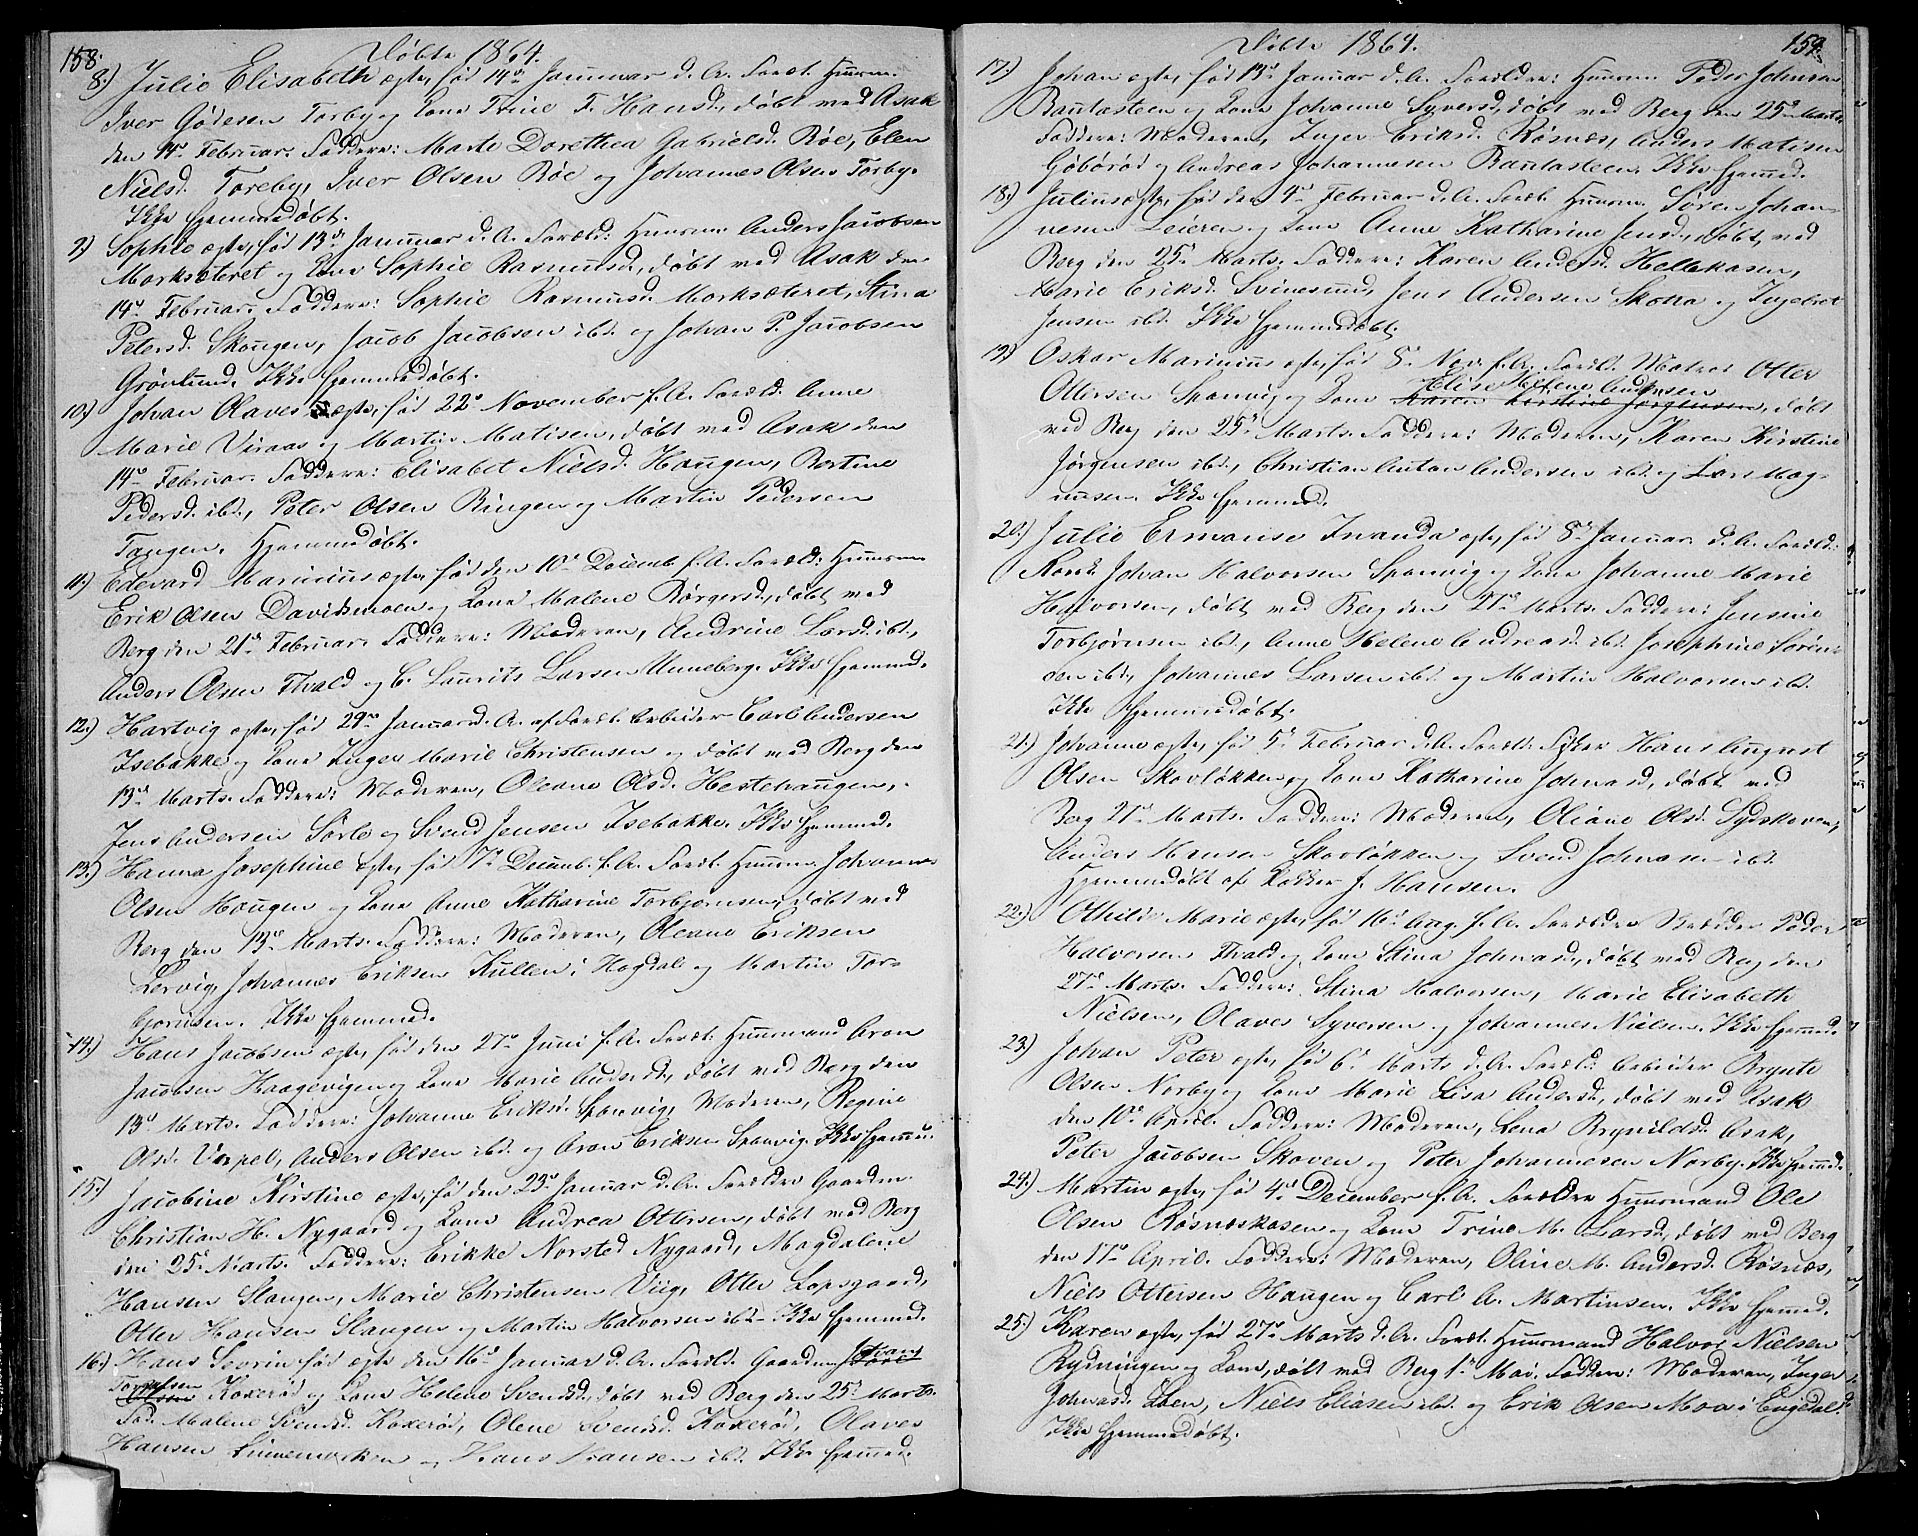 158.
Døbte 1864.
8.) Julie Elisabeth ægte, fød 14de Januar d. A. Foræl: Huusm.
Iver Gødesen Torby og Kone Trine T. Hansd., døbt ved Asak
den 14de Februar. Faddere: Marte Dorothea Gabrielsd. Röe, Elen
Nielsd. Toreby, Iver Olsen Röe og Johannes Olsen Torby.
Ikke hjemmedøbt.
9) Sophie ægte, fød 13de Januar d. A. Foræld: Huusm. Anders Jacobsen
Marksæteret og Kone Sophie Rasmusd., døbt ved Asak den
14de Februar. Faddere: Sophie Rasmusd. Marksæteret, Stina
Petersd. Skougen, Jacob Jacobsen ibd. og Johan P. Jacobsen
Grönlund. Ikke hjemmedøbt.
10.) Johan Olaves ægte, fød 22de November f. A. Foræld: Anne
Marie Viraas og Martin Matisen, døbt ved Asak den
14de Februar. Faddere: Elisabet Nielsd. Haugen, Bertine
Pedersd. ibd., Peter Olsen Ringen og Martin Pedersen
Tangen. Hjemmedøbt.
11.) Edevard Marinius ægte, fød den 10de Decemb. f. A. Foræld: Huusm.
Erik Olsen Davidsmoen og Kone Malene Börgersd., døbt ved
Berg den 21de Februar. Faddere: Moderen, Andrine Larsd. ibd.,
Anders Olsen Thvald og C. Laurits Larsen Unneberg. Ikke hjemmed.
12.) Hartvig ægte, fød 29de Januar d. A. af Foræl. Arbeider Carl Andersen
Isebakke og Kone Inger Marie Christensen og døbt ved Berg den
13de Marts. Faddere: Moderen, Oleane Olsd. Hestehaugen,
Jens Andersen Sörle og Svend Jensen Isebakke. Ikke hjemmed.
13.) Hanna Josephine ægte, fød 7de Decemb. f. A. Foræl. Huusm. Johannes
Olsen Haugen og Kone Anne Katharine Torbjørnsen, døbt ved
Berg den 13de Marts. Faddere: Moderen, Oleane Eriksen
Lervig, Johannes Eriksen Kullen i Hogdal og Martin Tor-
bjørnsen. Ikke hjemmed.
14.) Hans Jacobsen ægte, fød den 27de Juni f. A. Foræl. Huusmand Aron
Jacobsen Haagevigen og Kone Marie Andersd., døbt ved Berg den
13de Marts. Faddere: Johanne Eriksd. Sponvig, Moderen, Regine
Olsd. Vorpel, Anders Olsen ibd. og Aron Eriksen Sponvig. Ikke hjemme.
15.) Jacobine Kirstine ægte, fød den 23de Januar d. A. Forældre Gaardm.
Christian H. Nygaard og Kone Andrea Ottersen, døbt ved Berg
den 25de Marts. Faddere: Erikke Norsted Nygaard, Magdalene
Hansen Slangen, Marie Christensen Viig, Otter Lopsgaard,
Otter Hansen Slangen og Martin Halvorsen ibd. Ikke hjemmed.
16.) Hans Sevrin fød ægte den 16de Januar d. A. Foræld. Gaardm. Johans
Kokeröd og Kone Helene Svendsd., døbt ved Berg den 25de Marts.
Fad. Malene Svendsd. Kokeröd, Olene Svendsd. Kokeröd, Olaves
Hansen og Hans Hansen ibd. Ikke hjemmed.
159.
Døbte 1864.
17.) Johan ægte, fød 13de Januar d. A. Forældre: Huusm. Peder Johnsen
Bautasteen og Kone Johanne Syversd., døbt ved Berg den 25de Marts.
Faddere: Moderen, Inger Eriksd. Rösnæs, Anders Matisen
Göböröd og Andreas Johannesen Bautasteen. Ikke hjemmed.
18.) Julius ægte, fød den 4de Februar d. A. Foræl. Huusm. Sören Johan-
nesen Leieren og Kone Anne Katharine Jensd., døbt ved
Berg den 25de Marts. Faddere: Karen Andersd. Hellekasen,
Marie Eriksd. Svinesund, Jens Andersen Skotta og Ingebret
Jensen ibd. Ikke hjemmedøbt.
19) Oskar Marinius ægte, fød 8de Nov. f. A. Foræld. Matros Otter
Ottersen Sponvig og Kone Elise Helene Andersen Karen Kirstine Jörgensen, døbt
ved Berg den 25de Marts. Faddere: Moderen, Karen Kirstine
Jörgensen ibd., Christian Anton Andersen ibd. og Lars Mag-
nusen. Ikke hjemmed.
20.) Julie Ermanse Inanda ægte, fød 8de Januar d. A. Foræld:
Johan Halvorsen Sponvig og Kone Johanne Marie
Halvorsen, døbt ved Berg den 27de Marts. Faddere: Jensine
Torbjørnsen ibd., Anne Helene Andreasd. ibd. Josephine Sören-
sen ibd., Johannes Larsen ibd. og Martin Halvorsen ibd.
Ikke hjemmedøbt.
21.) Johanne ægte, fød 5de Februar d. A. Foræl. Fisker Hans August
Olsen Skovløkken og Kone Katharine Johnasd., døbt ved
Berg 27de Marts. Faddere: Moderen, Oliane Olsd. Sydskoven,
Anders Hansen Skovløkken og Svend Johnasen ibd.
Hjemmedøbt af Kokker J. Hansen.
22.) Othilde Marie ægte, fød 16de Aug. f. A. Forældre Skrædder Peder
Halvorsen Thvald og Kone Stina Johnasd., døbt ved Berg den
27de Marts. Faddere: Stina Halvorsen, Marie Elisabeth
Nielsen, Olaves Syversen og Johannes Nielsen. Ikke hjemmed.
23.) Johan Peter ægte, fød 6de Marts d. A. Foræld: Arbeider Brynte
Olsen Norby og Kone Marie Lisa Andersd., døbt ved Asak
den 10de April. Faddere: Moderen, Lena Brynildsd. Asak,
Peter Jacobsen Skoven og Peter Johannesen Norby. Ikke hjemmed.
24.) Martin ægte, fød 4de December f. A. Forældre Huusmand Ole
Olsen Rösnæskasen og Kone Trine M. Larsd., døbt ved Berg
den 17de April. Faddere: Moderen, Oline M. Andersd. Rösnæs,
Niels Ottersen Haugen og Carl A. Martinsen. Ikke hjemmed.
25.) Karen ægte, fød 27de Marts d. A. Foræl. Huusmand Halvor Nielsen
Rydningen og Kone, døbt ved Berg 1ste Mai. Faddere: Moderen, Inger
Johnasd. Lien, Niels Eliasen ibd. og Erik Olsen Moa i Engedal.
Ikke hjemmedøbt.